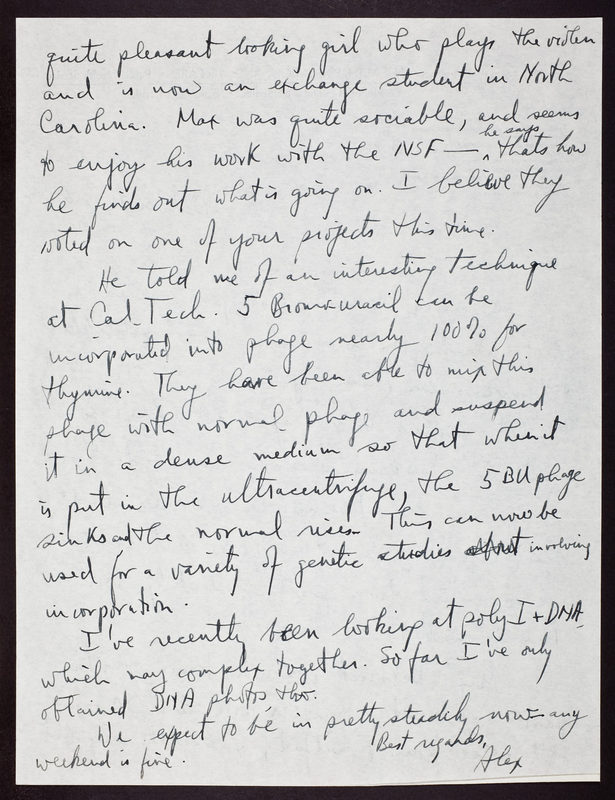 quite pleasant looking girl who plays the violin
and is now an exchange student in North
Carolina. Max was quite sociable, and seems
to enjoy his work with the NSF — he says, thats how
he finds out what is going on. I believe they
voted on one of your projects this time.
He told me of an interesting technique
at Cal. Tech. 5 Bromouracil can be
incorporated into phage nearly 100% for
thymine. They have been able to mix this
phage with normal phage and suspend
it in a dense medium so that when it
is put in the ultracentrifuge, the 5 BU phage
sinks and the normal rises. This can now be
used for a variety of genetic studies involving
incorporation.
I've recently been looking at poly I + DNA
which may complex together. So far I've only
obtained DNA photos tho.
We expect to be in pretty steadily now - any
weekend is fine. Best regards,
Alex